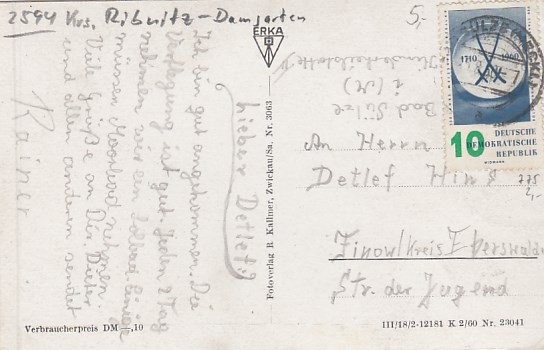 2594 Krs. Ribnitz-Damgarten
5,-
Lieber Detlef!
Ich bin gut angekommen. Die
Verpflegung ist gut. Jeden 2 Tag
nehmen wir ein Solbad &
müssen Moorbad nehmen.
Viele Grüße an Dir, Dieter
und allen anderen sendet
Rainer
ERKA
Fotoverlag R. Kallmer, Zwickau/Sa. Nr. 3063
Bad Sülze
An Herrn
Detlef
Finow/Kreis Eberswalde
Str. der Jugend
1710 1960
10
DEUTSCHE
DEMOKRATISCHE
REPUBLIK
Verbraucherpreis DM —,10
III/18/2-12181 K 2/60 Nr. 23041